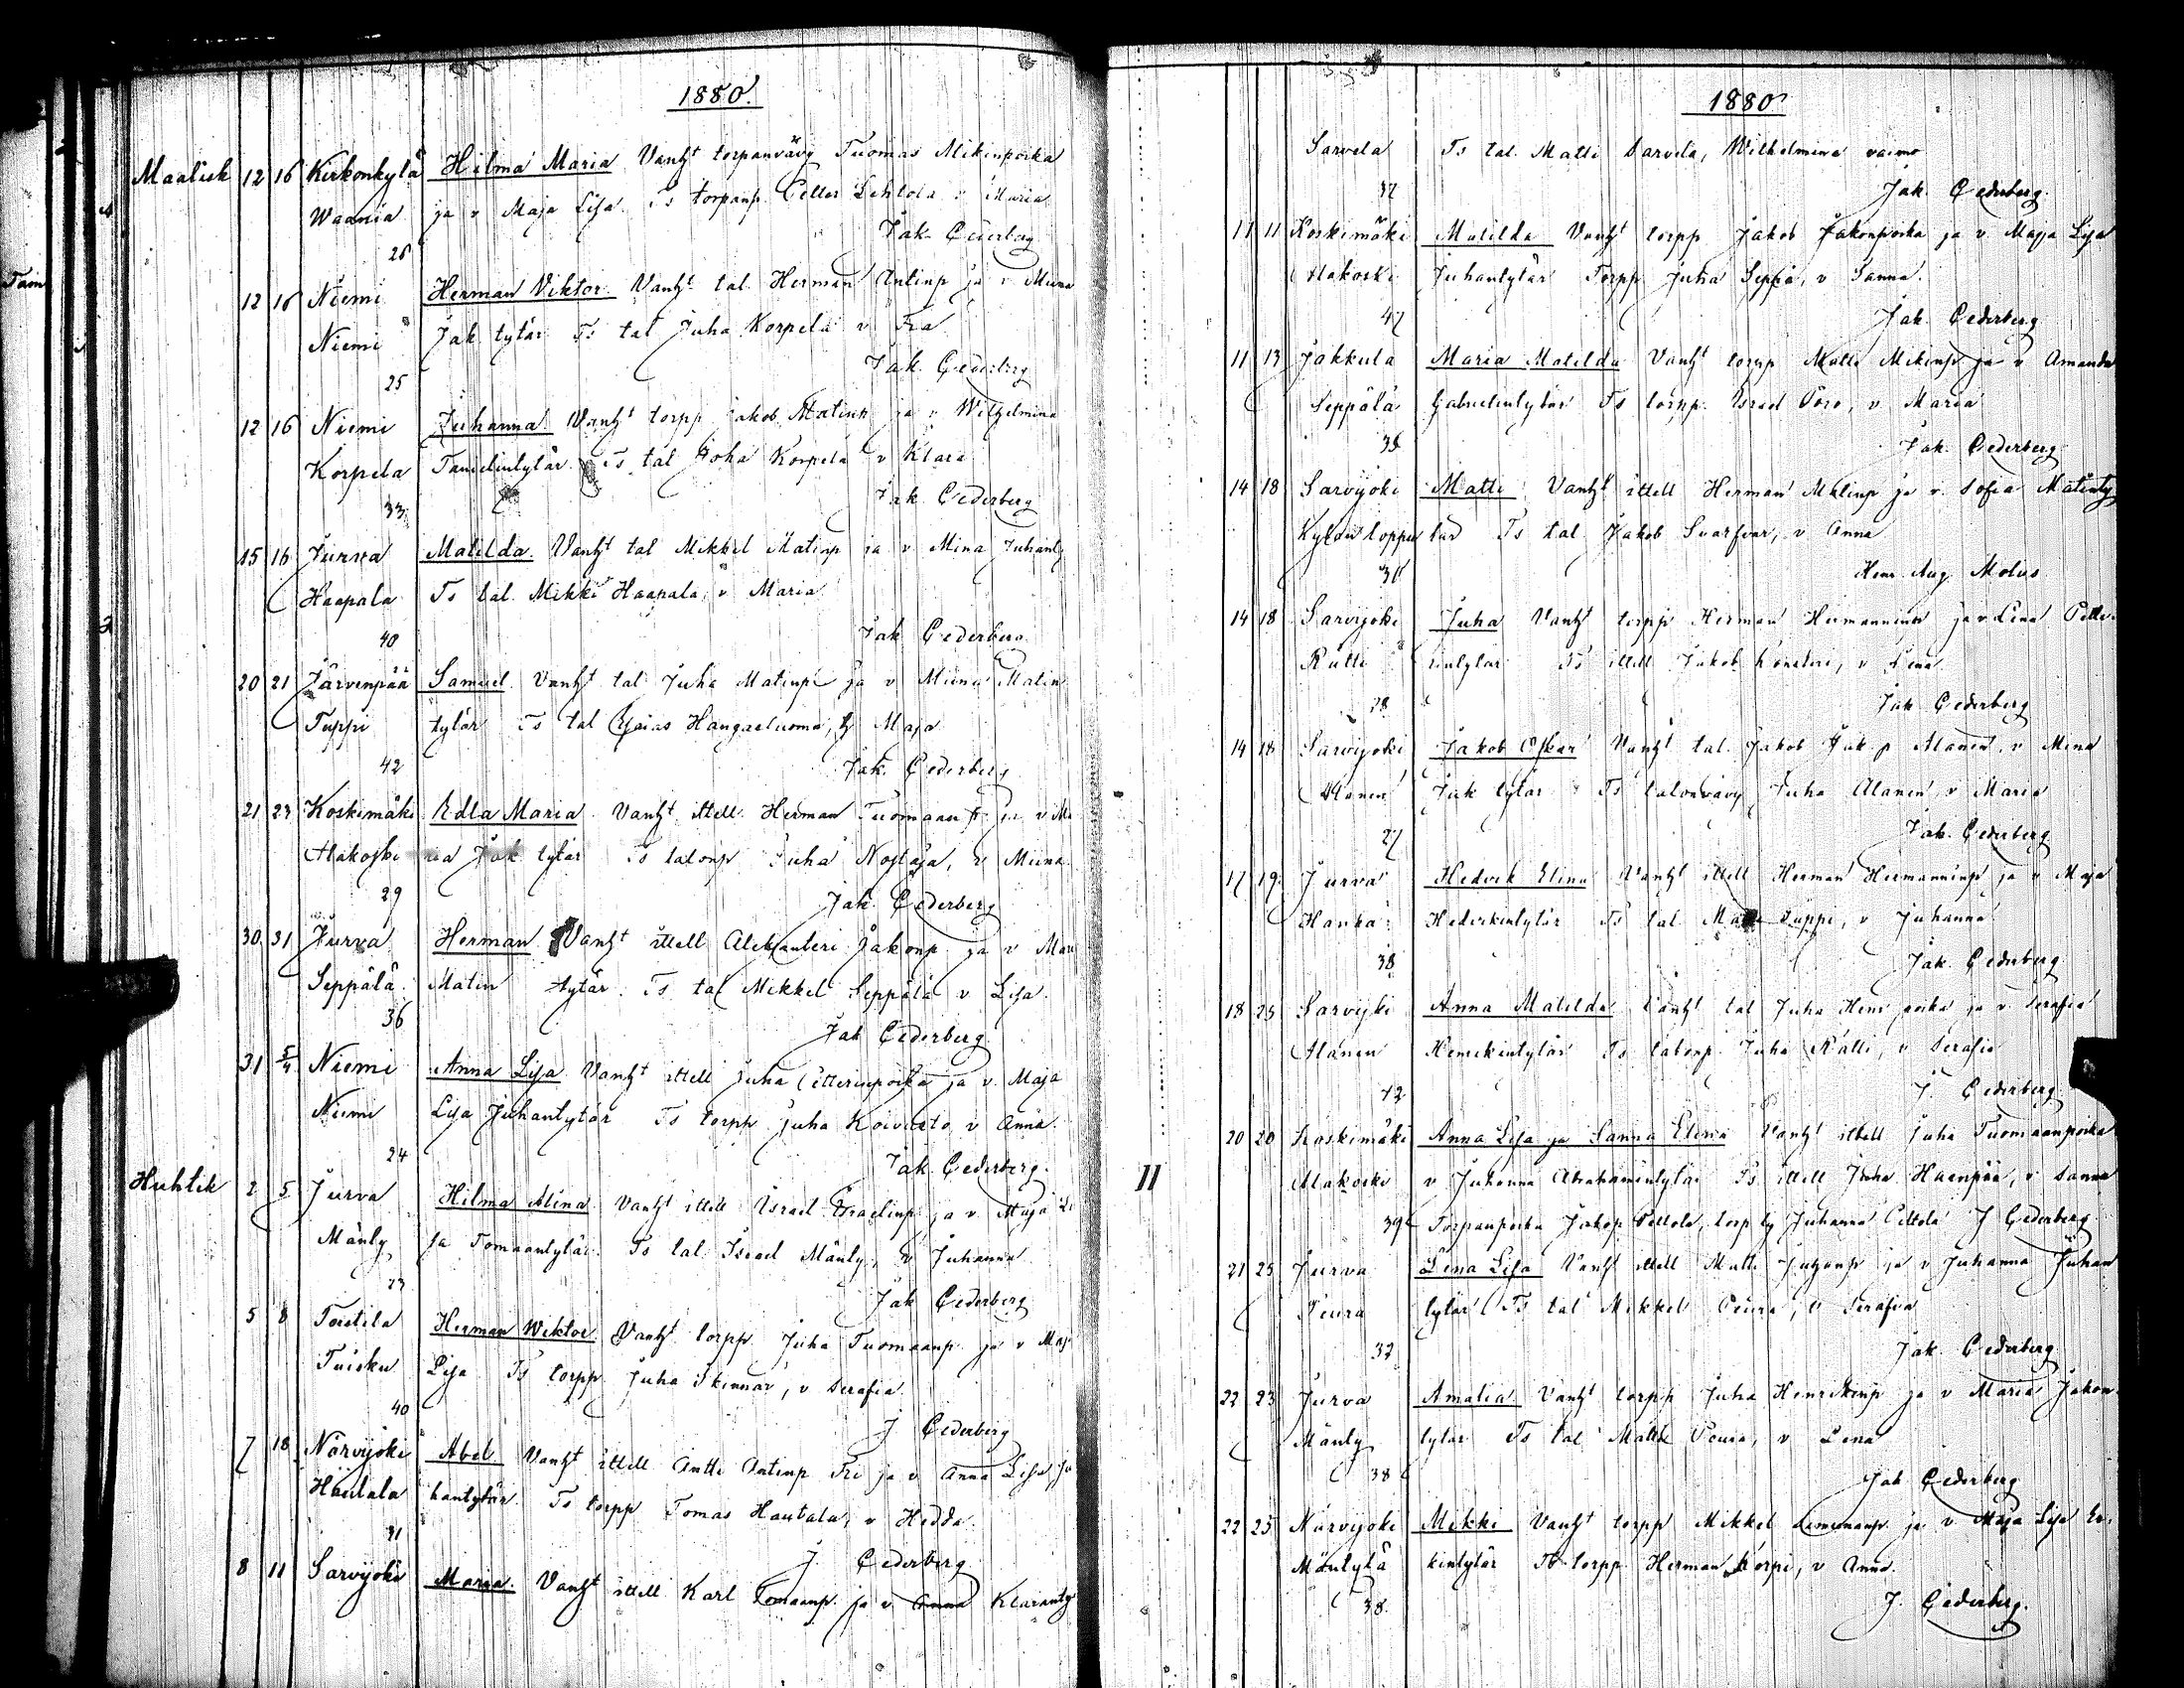 1880.
Maalisk 12 16 Kirkonkylä Hilma Maria Vanht torpanvävy Tuomas Mikinpoika
Waania ja v Maja Lisa. Ts torpanp Petter Lehtola v Maria
Jak. Cederberg
12 16 Niemi Herman Viktor Vanht tal Herman Antinp ja v Miina
Niemi Jak. tytär Ts tal Juha Korpela v
Jak. Cederberg
25
12 16 Niemi Juhanna Vanht torpp Jakob Matinp ja v Wilhelmina
Korpela Ts tal Joha Korpela v Klara
Jak Cederberg
33
15 16 Jurva Matilda. Vanht tal Mikkel Matinp ja v Mina
Haapala Ts tal. Mikki Haapala, v Maria
40 Jak Cederberg
20 21 Järvenpää Samuel Vanht tal Juha Matinp ja v Miina Matin
Tuppi tytär Ts tal Esaias Hangaeluoma, ty Maja
42 Jak. Cederberg
21 23 Koskimäki Edla Maria Vanht ittell. Herman Tuomaanp ja v Ma
Alakoski ria Jak tytär Ts talonp Juha v Miina
29 Jak. Cederberg
30 31 Jurva Herman Vanht ittell Aleksanteri Jakonp ja v
Seppälä Matin tytär. Ts tal Mikkel Seppälä v Lisa.
36 Jak Cederberg
31 5/4 Niemi Anna Lisa Vanht ittell Juha Petterinpoika ja v. Maja
Niemi Lisa Juhantytär Ts torpp Juha Koivisto v Anna
24 Jak Cederberg.
Huhtik 2 5 Jurva Hilma Alina Vanht ittell Israel Israelinp ja v. Maja Li
Mänty sa Tomaantytär Ts tal Israel Mänty, v Juhanna
23 Jak Cederberg
5 8 Tostila Herman Wiktor Vanht torpp Juha Tuomaanp ja v Maj
Tuisku Lisa Ts torpp Juha Skinnar, v Serafia.
40 J Cederberg
7 18 Närvijoki Abel Vanht ittell Antti Antinp ja v Anna Lisa Ju
Hautala hantytär Ts torpp Tomas Hautala, v Hedda.
31 J. Cederberg
8 11 Sarvijoki Maria. Vanht ittell Karl Tomaanp. ja v Anna
1880
Sarvela Ts tal. Matti Sarvela, Wilhelmina vaimo
32 Jak. Cederberg.
11 11 Koskimäki Matilda Vanht torpp Jakob Jakonpoika ja v. Maja Lisa
Alakoski Juhantytär Torpp Juha Seppä, v Sanna.
Jak Cederberg
11 13 Jakkula Maria Matilda Vanht torpp Matti Mikinp ja v Amanda
Seppälä Gabrielintytär Ts torpp. Israel v Maria
Jak. Cederberg
14 18 Sarvijoki Matti Vanht ittell Herman Matinp ja v Sofia Matinty
Kylänloppu tär Ts tal Jakob v Anna
Henr. Aug. Molus
14 18 Sarvijoki Juha Vanht torpp Herman Hermanninp ja v Lina Pette
Rätti rintytär Ts ittell Jakob v Lena
28 Jak Cederberg
14 18 Sarvijoki Jakob Oskar Vanht tal. Jakob Jak. p Alanen, v Mina
Alanen Jak tytär Ts talonvävy Juha Alanen, v Maria
27 Jak. Cederberg
17 19 Jurva Hedvik Elina Vanht ittell Herman Hermanninp ja v Maja
Hanka Ts tal v Juhanna
38 Jak. Cederberg
18 25 Sarvijki Anna Matilda Vanht tal Juha Henr. poika ja v. Serafia
Alanen Henrikintytär Ts talonp Juha Rätti, v Serafia
42 J. Cederberg
20 20 Koskimäki Anna Lisa ja Sanna Elina Vanht ittell Juha Tuomaanpoika
Alakoski v Juhanna Abrahamintytär Ts ittell Juha Haanpää, v Sanna
39 Torpanpoika Jakop Pettola, torp ty Juhanna Pettola J Cederberg
21 25 Jurva Lena Lisa Vanht ittell Matti ja v Juhanna Juhan
Peura tytär Ts tal Mikkel Peura, v Serafia
32 Jak Cederberg
22 23 Jurva Amalia Vanht torpp Juha Henrikinp ja v Maria Jakon
Mänty tytär Ts tal Matti Peura, v Lena
38 Jak Cederberg
22 25 Närvijoki Mikki Vanht torpp Mikkel ja v Maja Lisa Er.
Mäntylä kintytär Ts torpp Herman Korpi, v Anna.
38. J. Cederberg.